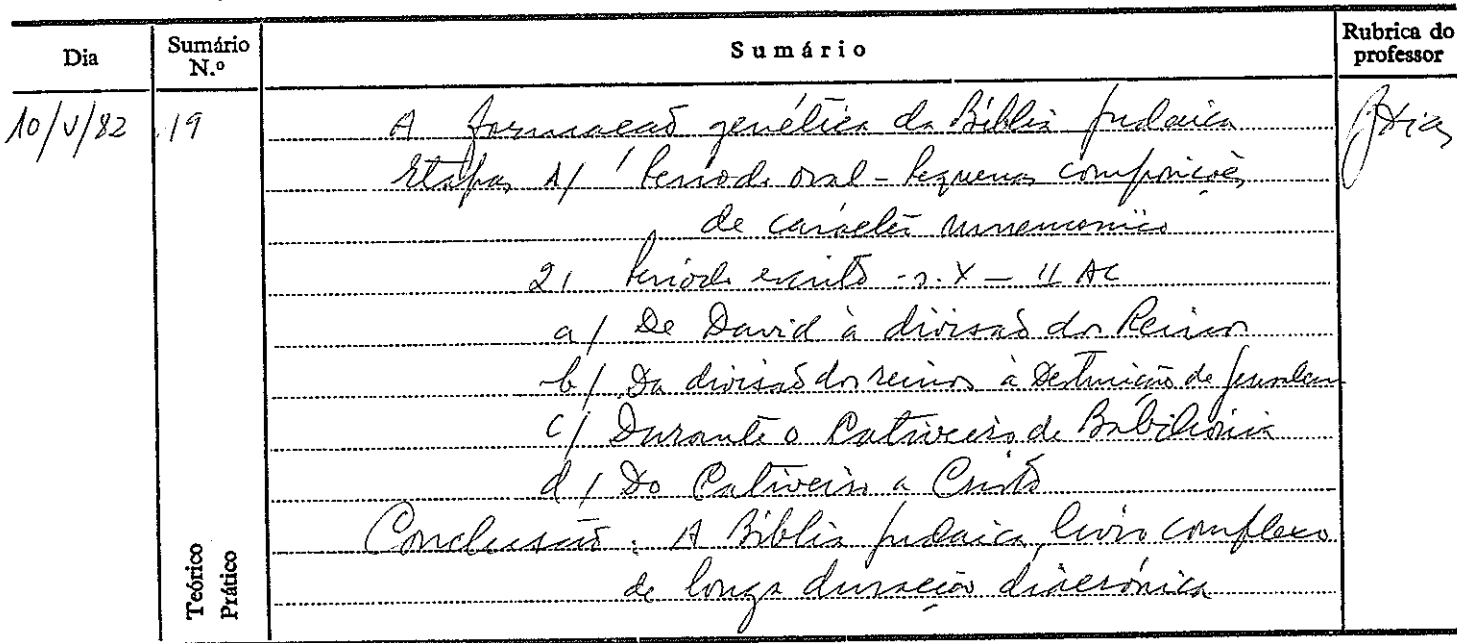 Dia Sumário N.º Sumário Rubrica do professor
10/V/82 19 A formação genética da Bíblia judaica JDias
Etapas 1/ Período oral - Pequenas composições
de carácter mnemonico
2/ Período escrito - s. X - II AC
a/ De David à divisão dos Reinos
b/ Da divisão dos reinos à Destruição de Jerusalem
c/ Durante o Cativeiro de Babilónia
d/ Do Cativeiro a Cristo
Conclusão: A Bíblia judaica, livro complexo
de longa duração diacrónica
Teórico
Prático